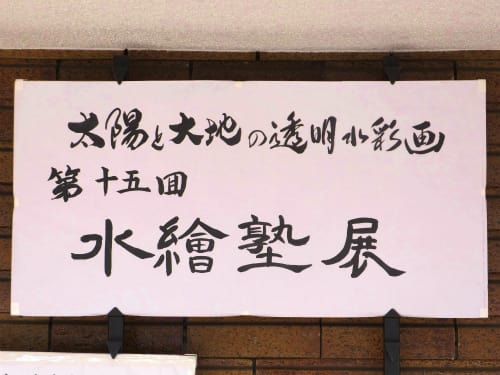 太陽と大地の透明水彩画
第十五回
水繪塾展